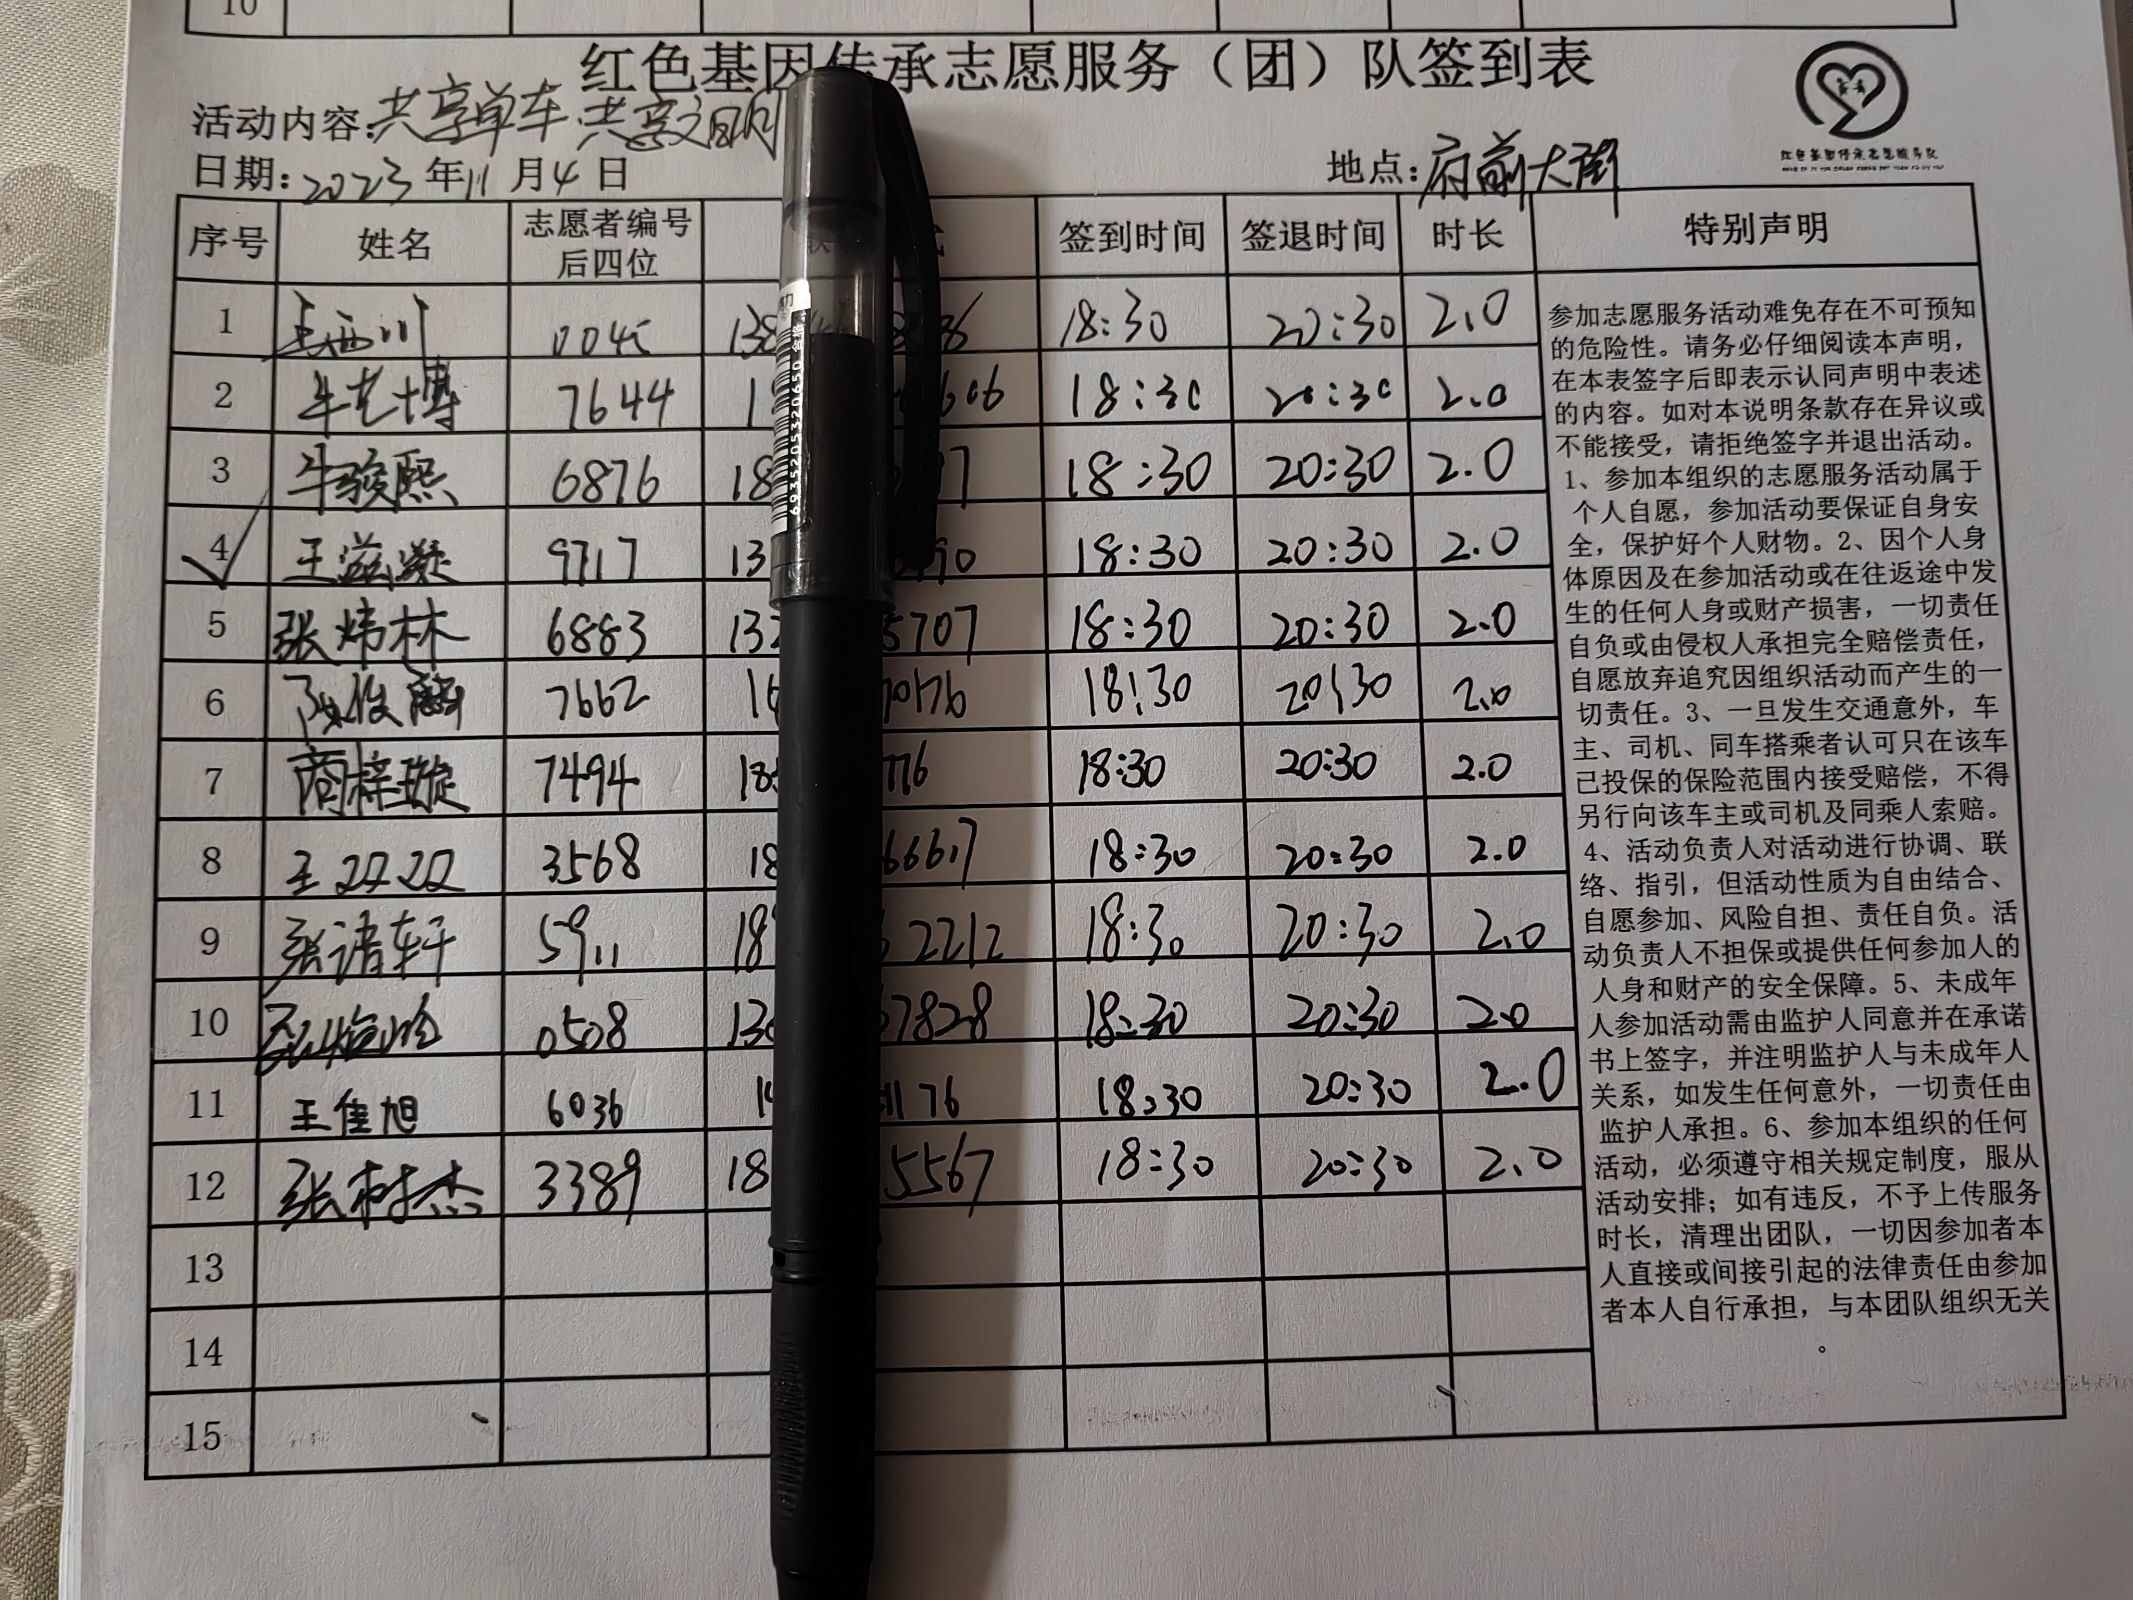 10
红色基因传承志愿服务（团）队签到表
活动内容：共享单车 共享文明
日期：2023年11月4日 地点：府前大街
序号 姓名 志愿者编号后四位 签到时间 签退时间 时长 特别声明
1 004 138 18:30 20:30 2.0
2 牛艺博 7644 1 606 18:30 20:30 2.0
3 牛骏熙 6876 18 97 18:30 20:30 2.0
4 王滋凝 9717 13 90 18:30 20:30 2.0
5 张炜林 6883 132 5707 18:30 20:30 2.0
6 俊 7662 1 70176 18:30 20:30 2.0
7 商梓璇 7494 18 776 18:30 20:30 2.0
8 王双双 3568 18 66617 18:30 20:30 2.0
9 张诸轩 5911 18 2212 18:30 20:30 2.0
10 0508 130 7828 18:30 20:30 2.0
11 王佳旭 6036 1 1176 18:30 20:30 2.0
12 张树杰 3389 18 5567 18:30 20:30 2.0
13
14
15
参加志愿服务活动难免存在不可预知
的危险性。请务必仔细阅读本声明，
在本表签字后即表示认同声明中表述
的内容。如对本说明条款存在异议或
不能接受，请拒绝签字并退出活动。
1、参加本组织的志愿服务活动属于
个人自愿，参加活动要保证自身安
全，保护好个人财物。2、因个人身
体原因及在参加活动或在往返途中发
生的任何人身或财产损害，一切责任
自负或由侵权人承担完全赔偿责任，
自愿放弃追究因组织活动而产生的一
切责任。3、一旦发生交通意外，车
主、司机、同车搭乘者认可只在该车
已投保的保险范围内接受赔偿，不得
另行向该车主或司机及同乘人索赔。
4、活动负责人对活动进行协调、联
络、指引，但活动性质为自由结合、
自愿参加、风险自担、责任自负。活
动负责人不担保或提供任何参加人的
人身和财产的安全保障。5、未成年
人参加活动需由监护人同意并在承诺
书上签字，并注明监护人与未成年人
关系，如发生任何意外，一切责任由
监护人承担。6、参加本组织的任何
活动，必须遵守相关规定制度，服从
活动安排；如有违反，不予上传服务
时长，清理出团队，一切因参加者本
人直接或间接引起的法律责任由参加
者本人自行承担，与本团队组织无关
。
红色基因传承志愿服务队
6935205320650